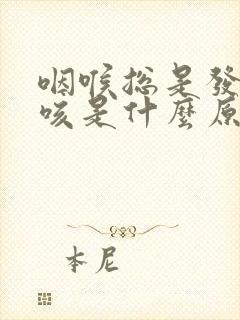 咽喉總是發
咳是什麼原
本尼